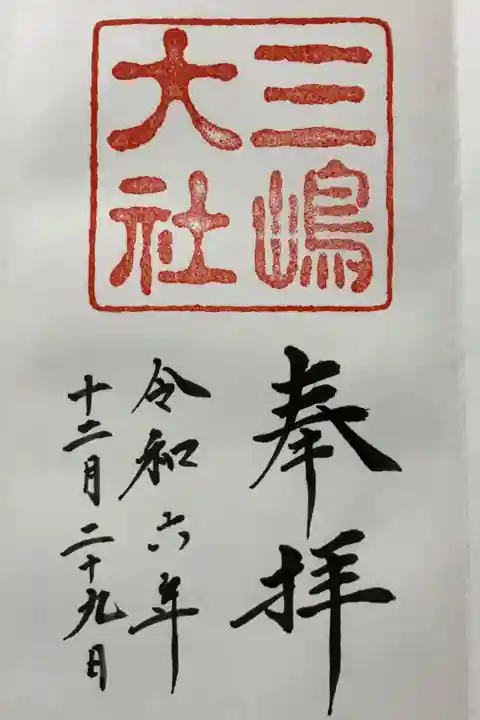 三嶋
大社
奉拝
令和六年
十二月二十九日